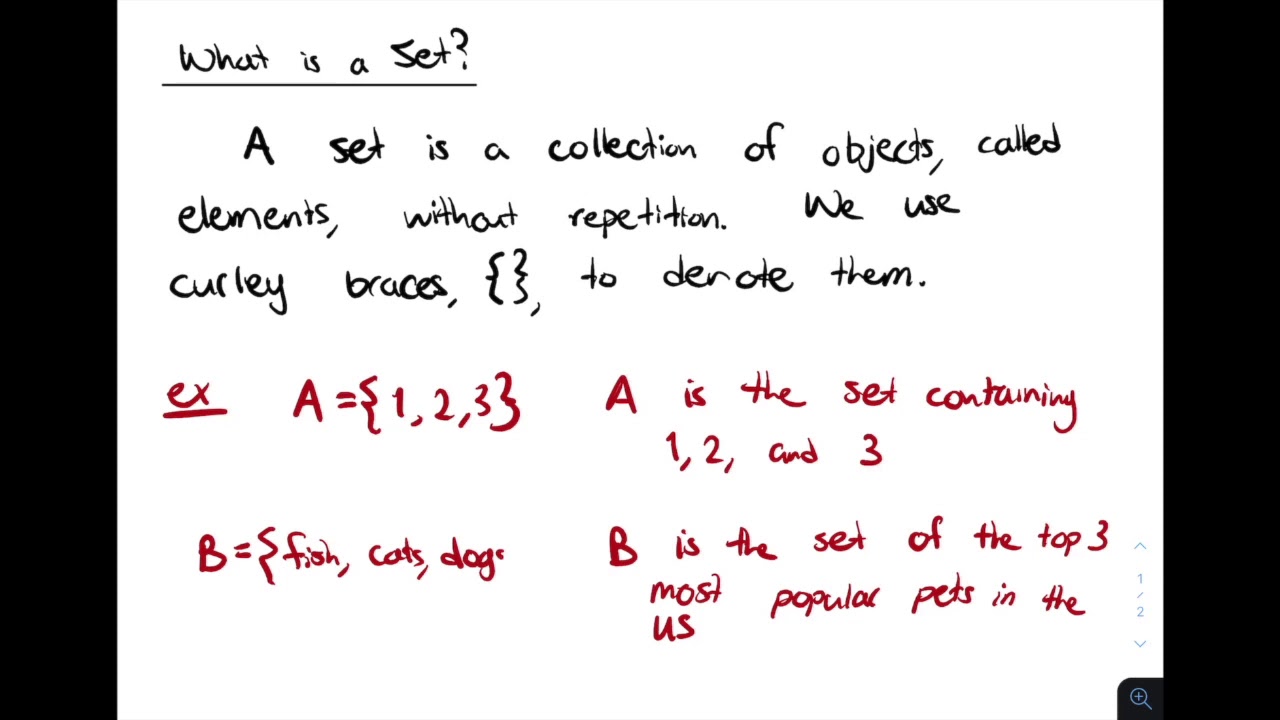 What is a Set?
A set is a collection of objects, called
elements, without repetition. We use
curley braces, {}, to denote them.
ex A={1,2,3} A is the set containing
1, 2, and 3
B={fish, cats, dogs B is the set of the top 3
most popular pets in the
US
1
/
2